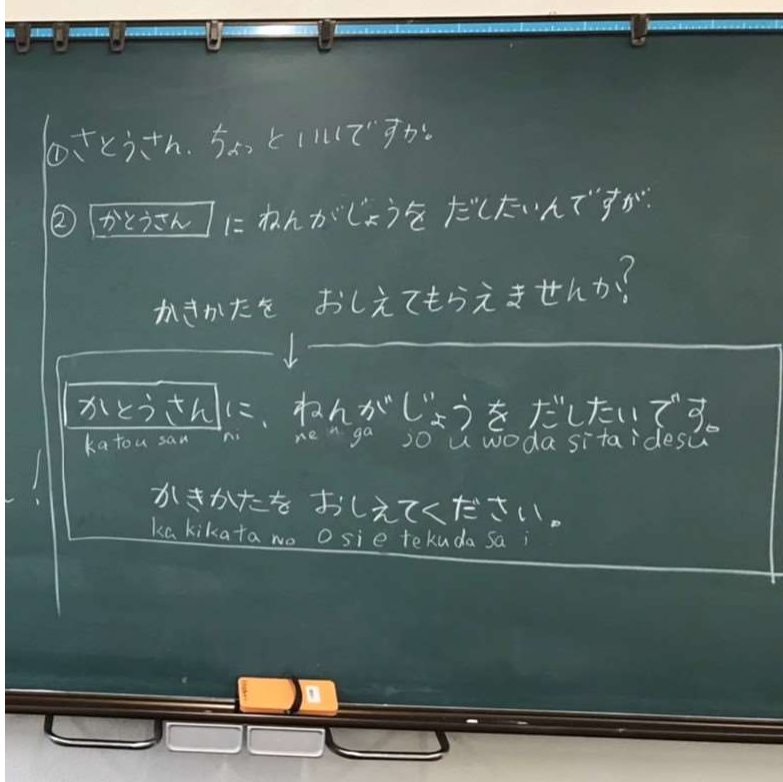 ①さとうさん、ちょっといいですか。
② かとうさん に ねんがじょうを だしたいんですが、
かきかたを おしえてもらえませんか?
↓
かとうさん に、ねんがじょうを だしたいです。
katou san ni ne n ga jo u wo da si ta i desu
かきかたを おしえてください。
ka kikata wo o si e tekuda sa i
!